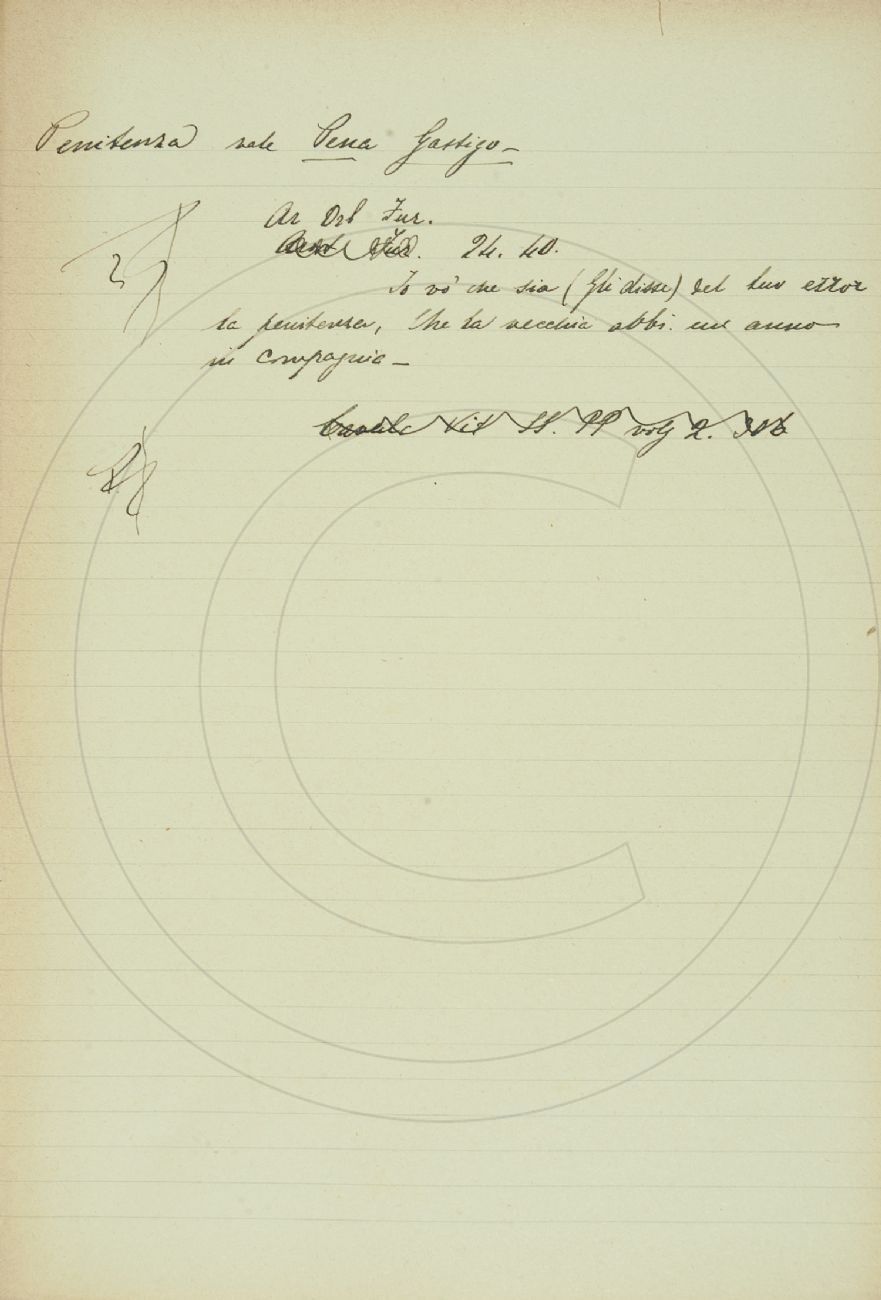 Penitenza vale Pena Gastigo_
Ar Orl Fur.
24. 40.
Io vo' che sia (Gli disse) del tuo error
la penitenza, Che la vecchia abbi un anno
in compagnia _
Cavalc Vit SS. PP volg 2. 306